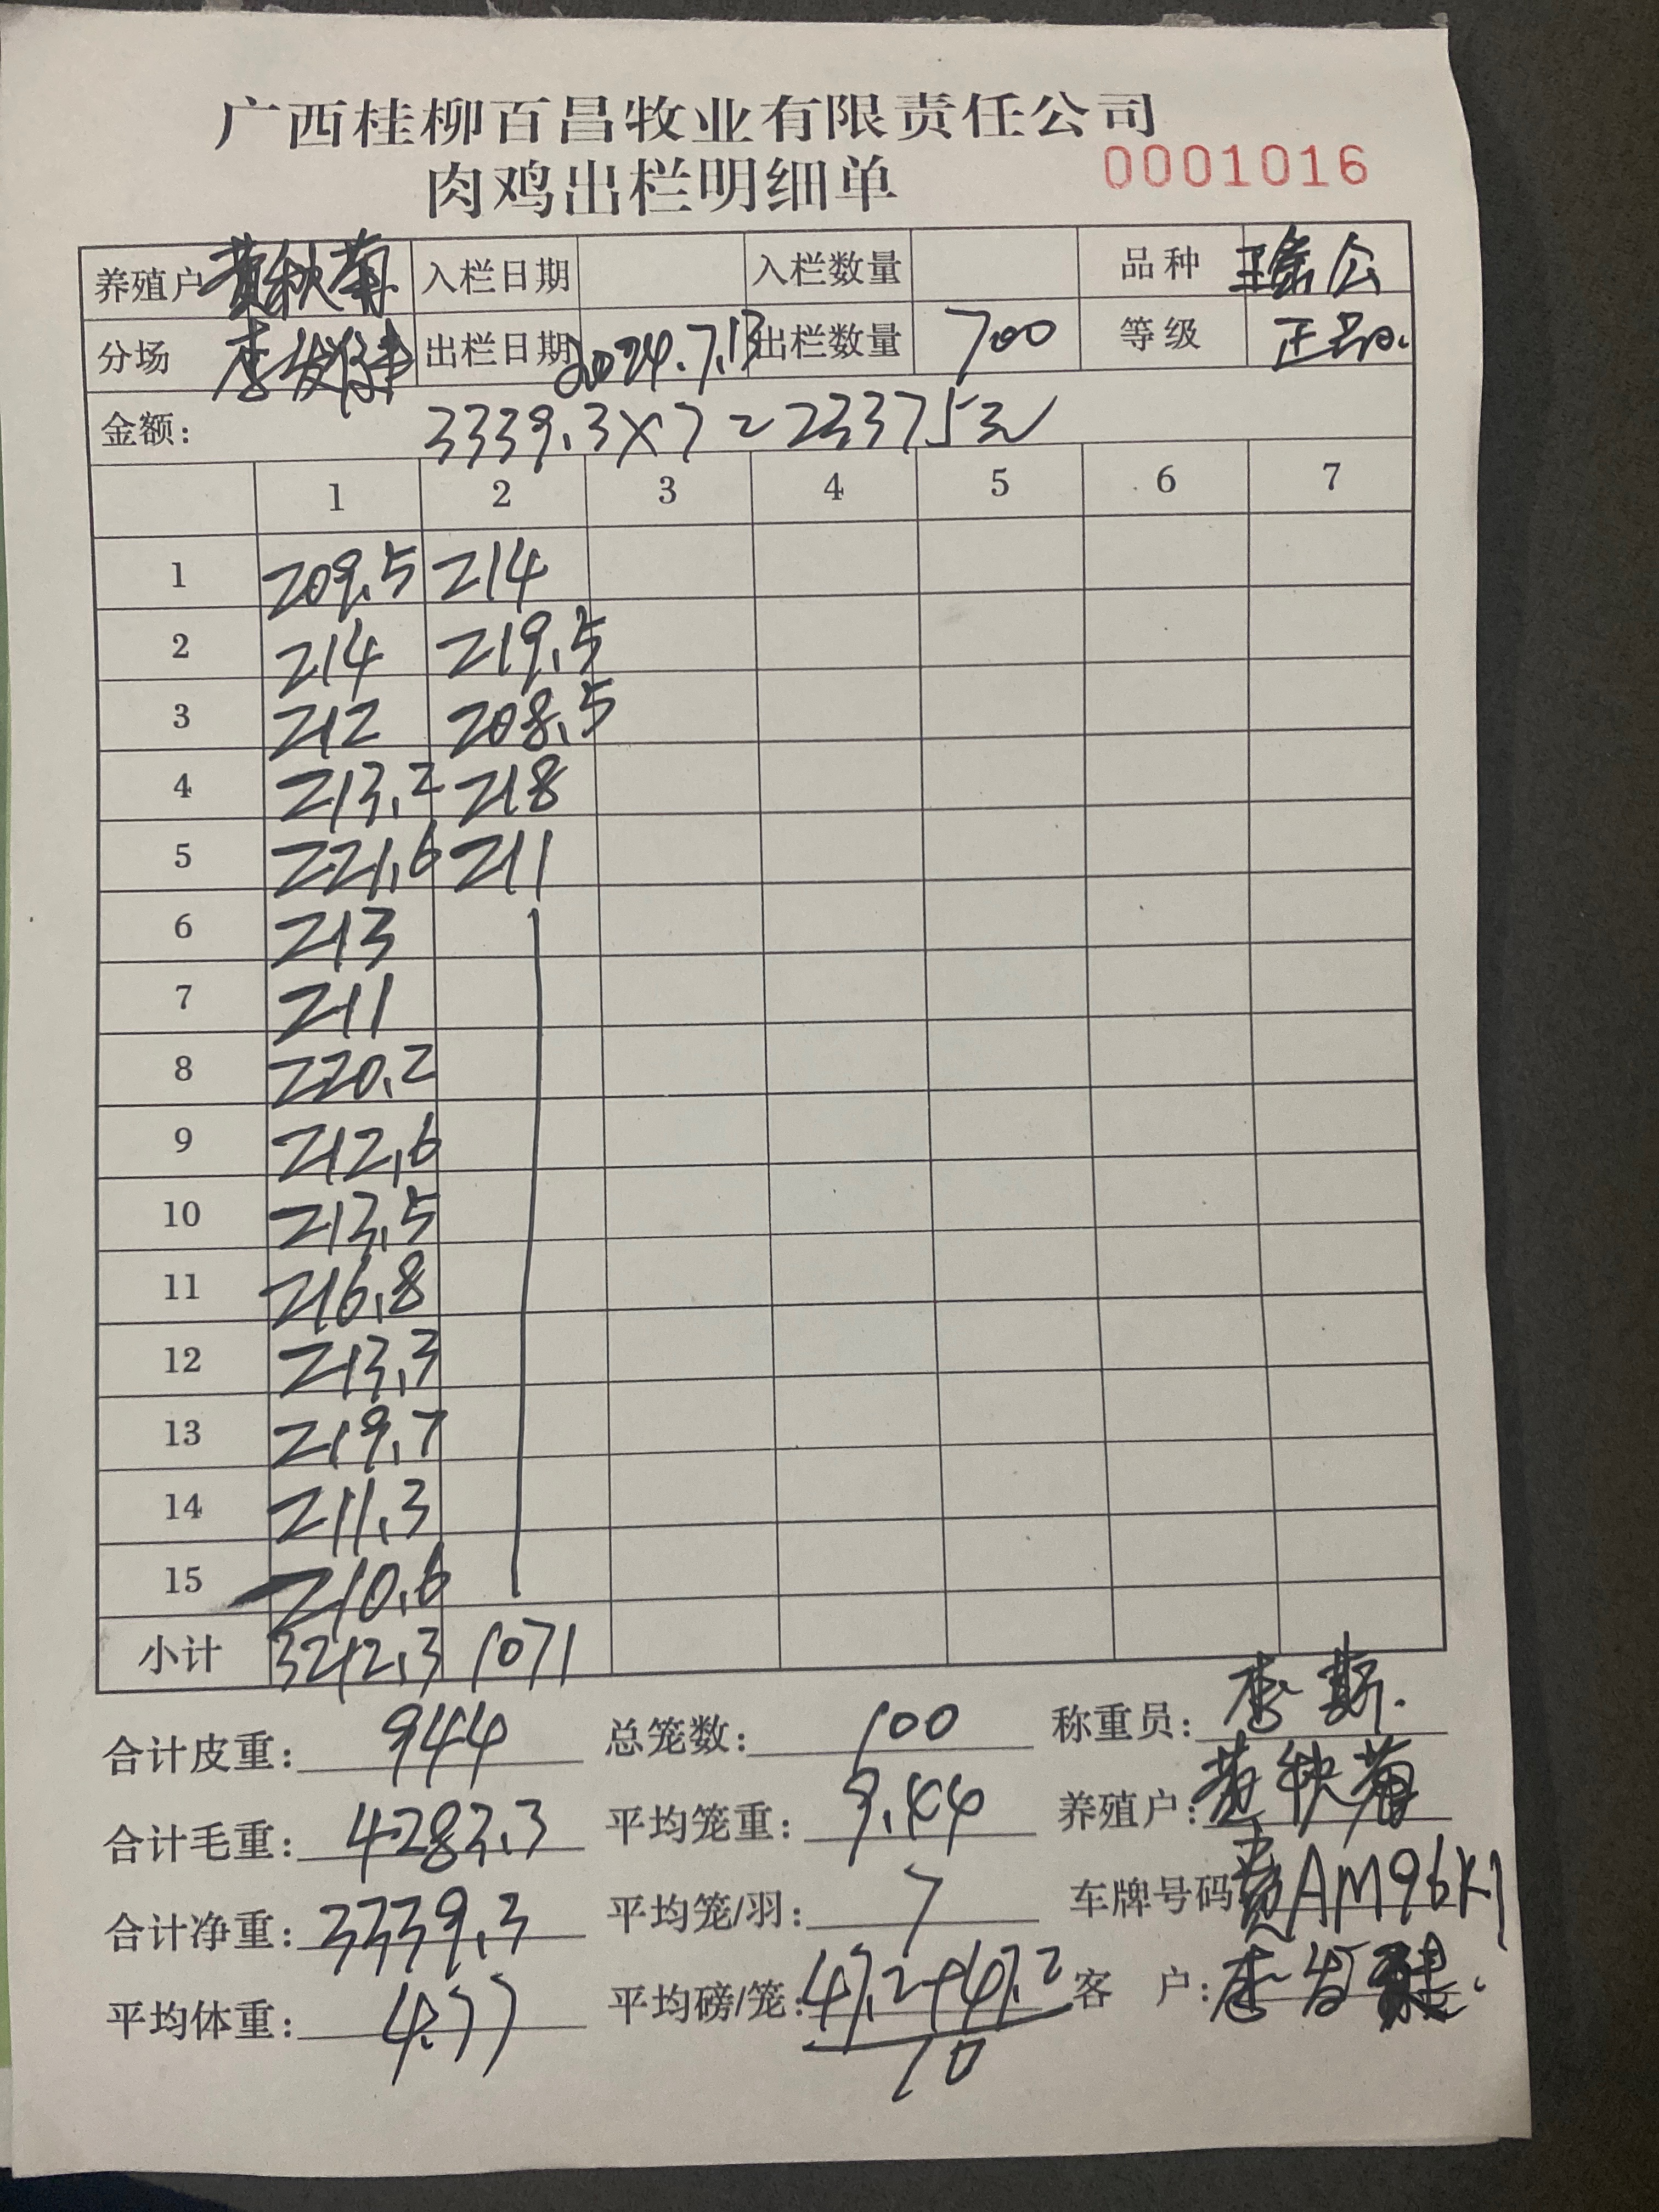 广西桂柳百昌牧业有限责任公司
肉鸡出栏明细单 0001016
养殖户 黄秋菊 入栏日期 入栏数量 品种 公
分场 李发 出栏日期 2024.7.13 出栏数量 700 等级 正品
金额: 3339.3×7=23375元
1 2 3 4 5 6 7
1 209.5 214
2 214 219.5
3 212 208.5
4 213.2 218
5 221.6 211
6 213
7 211
8 220.2
9 212.6
10 213.5
11 216.8
12 213.3
13 219.7
14 211.3
15 210.6
小计 3212.3 1071
合计皮重: 944 总笼数: 100 称重员: 李斯
合计毛重: 4283.3 平均笼重: 9.44 养殖户: 黄秋菊
合计净重: 3339.3 平均笼/羽: 7 车牌号码 AM96K1
平均体重: 4.77 平均磅/笼: 47.2+47.2 客 户: 李发
10